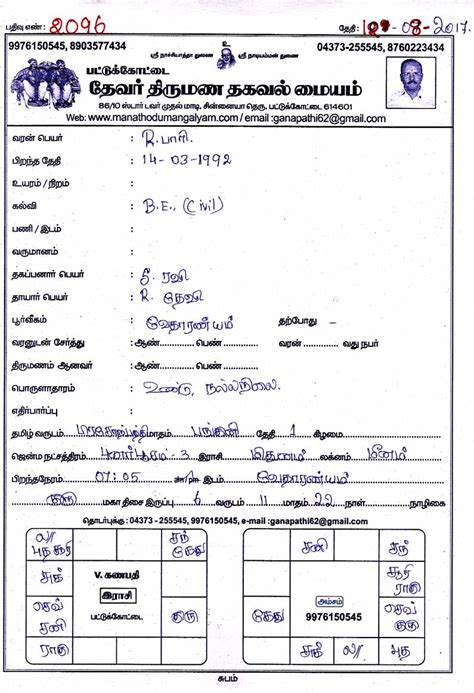 பதிவு எண் : 2096 தேதி : 12-08-2017
9976150545, 8903577434 உ 04373-255545, 8760223434
ஸ்ரீ நாச்சியாத்தா துணை ஸ்ரீ நாடியம்மன் துணை
பட்டுக்கோட்டை
தேவர் திருமண தகவல் மையம்
86/10 ஸ்டார் டவர் முதல் மாடி, சின்னையா தெரு, பட்டுக்கோட்டை 614601
Web: www.manathodumangalyam.com / email :ganapathi62@gmail.com
வரன் பெயர் : R. பாரி
பிறந்த தேதி : 14-03-1992
உயரம் / நிறம் :
கல்வி : B.E., (Civil)
பணி / இடம் :
வருமானம் :
தகப்பனார் பெயர் : S. ரவி
தாயார் பெயர் : R. தேவி
பூர்வீகம் : வேதாரண்யம் தற்போது :
வரனுடன் சேர்த்து : ஆண் பெண் வரன் வது நபர்
திருமணம் ஆனவர் : ஆண் பெண்
பொருளாதாரம் : உண்டு, நல்லநிலை.
எதிர்பார்ப்பு :
தமிழ் வருடம் மாதம் பங்குனி தேதி 1 கிழமை
ஜென்ம நட்சத்திரம் புனர்பூசம் - 3 இராசி மிதுனம் லக்னம் மீனம்
பிறந்தநேரம் 07:05 am/pm இடம் வேதாரண்யம்
குரு மகா திசை இருப்பு 6 வருடம் 11 மாதம் 22 நாள் நாழிகை
தொடர்புக்கு : 04373 -255545, 9976150545, e-mail :ganapathi62@gmail.com
ல/ புத சூரி சந் கேது சனி சந்
சுக் V. கணபதி இராசி பட்டுக்கோட்டை அம்சம் 9976150545 சூரி ராகு
செவ் சனி குரு கேது செவ் குரு
ராகு சுக் ல/ புத
சுபம்